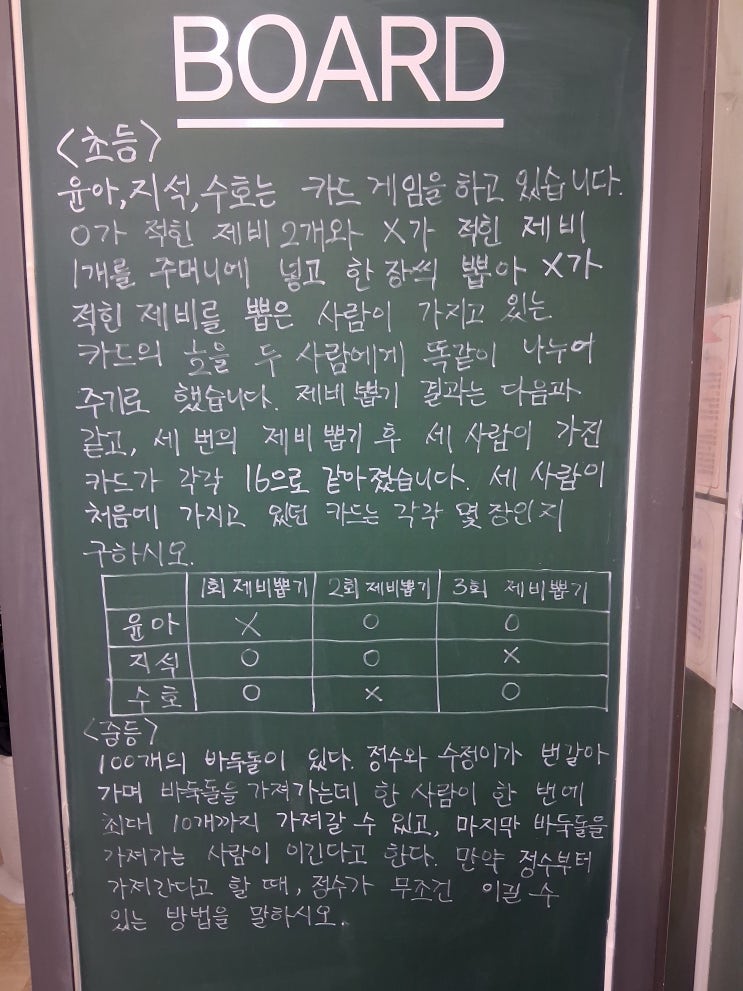 BOARD
<초등>
윤아,지석,수호는 카드 게임을 하고 있습니다.
O가 적힌 제비 2개와 X가 적힌 제비
1개를 주머니에 넣고 한 장씩 뽑아 X가
적힌 제비를 뽑은 사람이 가지고 있는
카드의 을 두 사람에게 똑같이 나누어
주기로 했습니다. 제비뽑기 결과는 다음과
같고, 세 번의 제비뽑기 후 세 사람이 가진
카드가 각각 16으로 같아졌습니다. 세 사람이
처음에 가지고 있던 카드는 각각 몇 장인지
구하시오.
1회 제비뽑기 2회 제비뽑기 3회 제비뽑기
윤아 X O O
지석 O O X
수호 O X O
<중등>
100개의 바둑돌이 있다. 정수와 수정이가 번갈아
가며 바둑돌을 가져가는데 한 사람이 한 번에
최대 10개까지 가져갈 수 있고, 마지막 바둑돌을
가져가는 사람이 이긴다고 한다. 만약 정수부터
가져간다고 할 때, 정수가 무조건 이길 수
있는 방법을 말하시오.